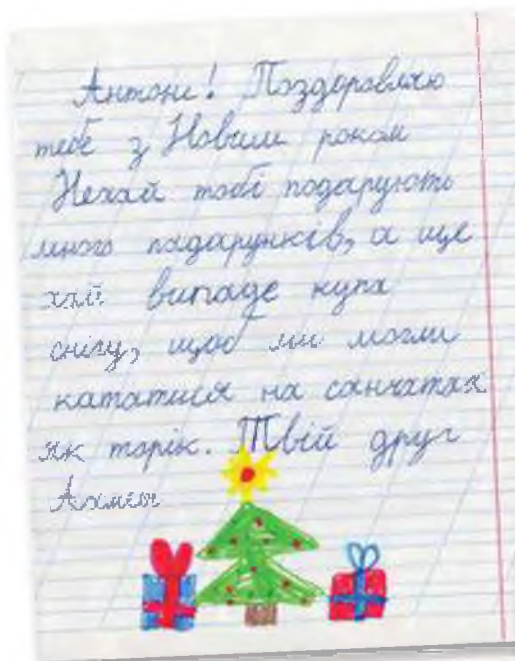 Антоне! Поздоровляю
тебе з Новим роком
Нехай тобі подарують
много падарунків, а ще
хай випаде купа
снігу, щоб ми могли
кататися на санчатах
як торік. Твій друг